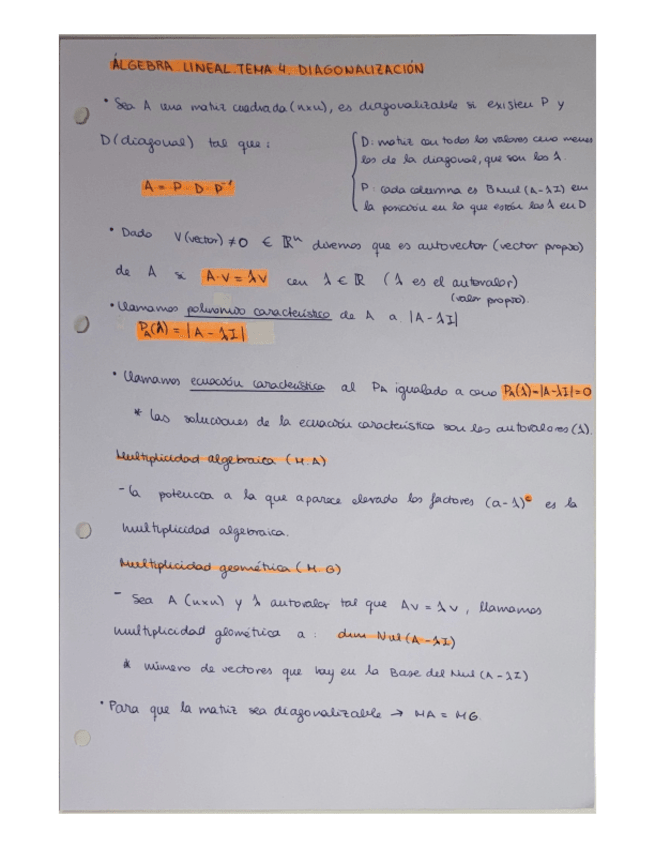 ÁLGEBRA LINEAL. TEMA 4. DIAGONALIZACIÓN
• Sea A una matriz cuadrada (nxn), es diagonalizable si existen P y
D (diagonal) tal que:
D: matriz con todos los valores cero menos
los de la diagonal, que son los λ.
A = P · D · P⁻¹
P: cada columna es BNul (A-λI) en
la posición en la que están los λ en D
• Dado V (vector) ≠ 0 ∈ ℝⁿ diremos que es autovector (vector propio)
de A si A·V = λV con λ ∈ ℝ (λ es el autovalor)
(valor propio).
• Llamamos polinomio característico de A a |A - λI|
P_A(λ) = |A - λI|
• Llamamos ecuación característica al P_A igualado a cero P_A(λ)=|A-λI|=0
* Las soluciones de la ecuación característica son los autovalores (λ).
Multiplicidad algebraica (M.A)
- La potencia a la que aparece elevado los factores (a-λ) es la
multiplicidad algebraica.
Multiplicidad geométrica (M.G)
- Sea A (nxn) y λ autovalor tal que Av = λv, llamamos
multiplicidad geométrica a: dim Nul (A-λI)
* número de vectores que hay en la Base del Nul (A-λI)
• Para que la matriz sea diagonalizable → MA = MG.